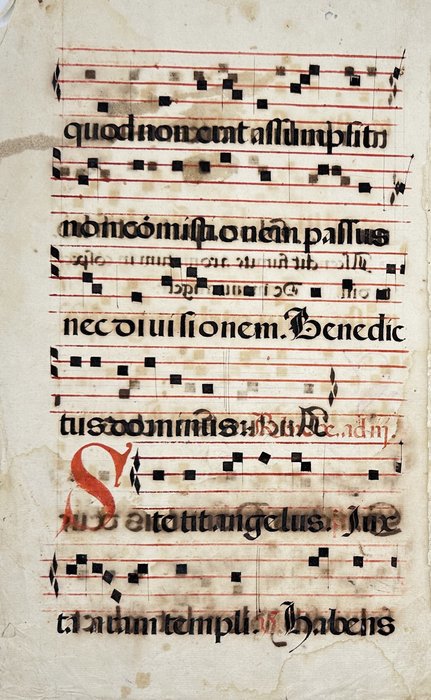 quod non erat assumpsit
non cómisti onem passus
nec di ui si onem. Benedic
tus dominus
Stetit angelus. Jux
ta aram templi. Habens